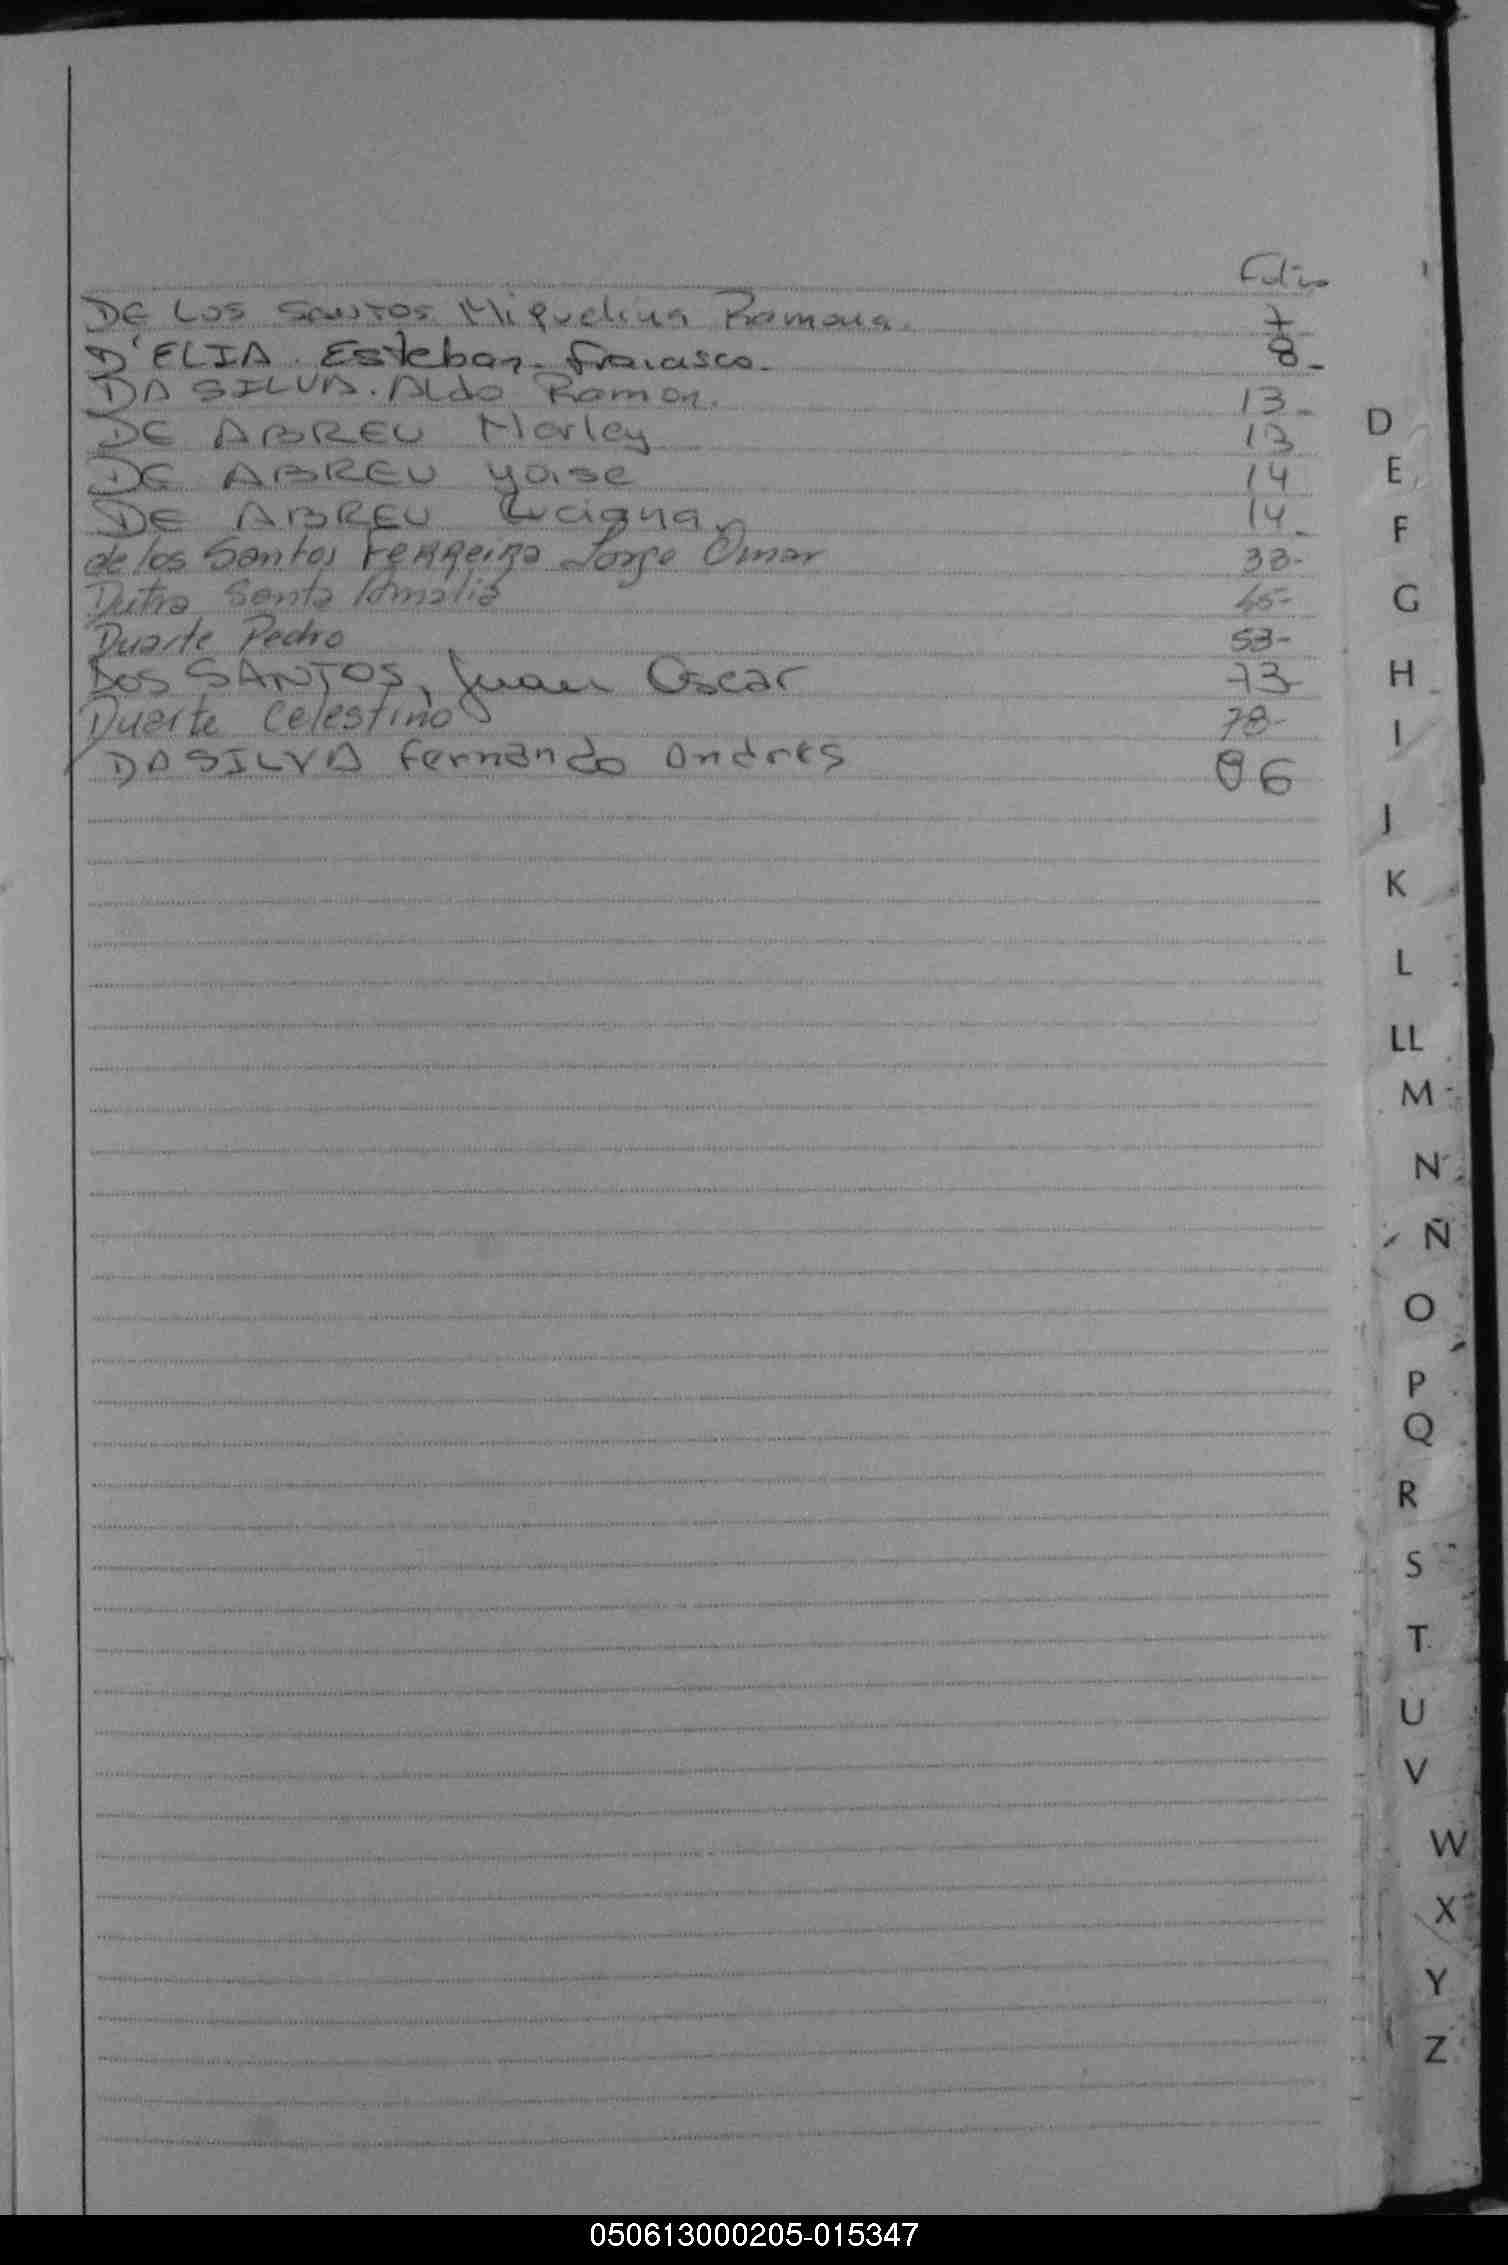 Folio
DE LOS SANTOS Miquelina Ramona. 7
D'ELIA. Esteban. Francisco. 8-
DA SILVA. ALdo Ramon. 13-
DE ABREU Marley 13
DE ABREU yoise 14
DE ABREU Luciana 14-
de los Santos Ferreira Jorge Omar 33-
Dutra Santa Amalia 45-
Duarte Pedro 53-
DOS SANTOS, Juan Oscar 73-
Duarte Celestino 78-
DA SILVA Fernando Andres 86
D
E
F
G
H
I
J
K
L
LL
M
N
Ñ
O
P
Q
R
S
T
U
V
W
X
Y
Z
050613000205-015347